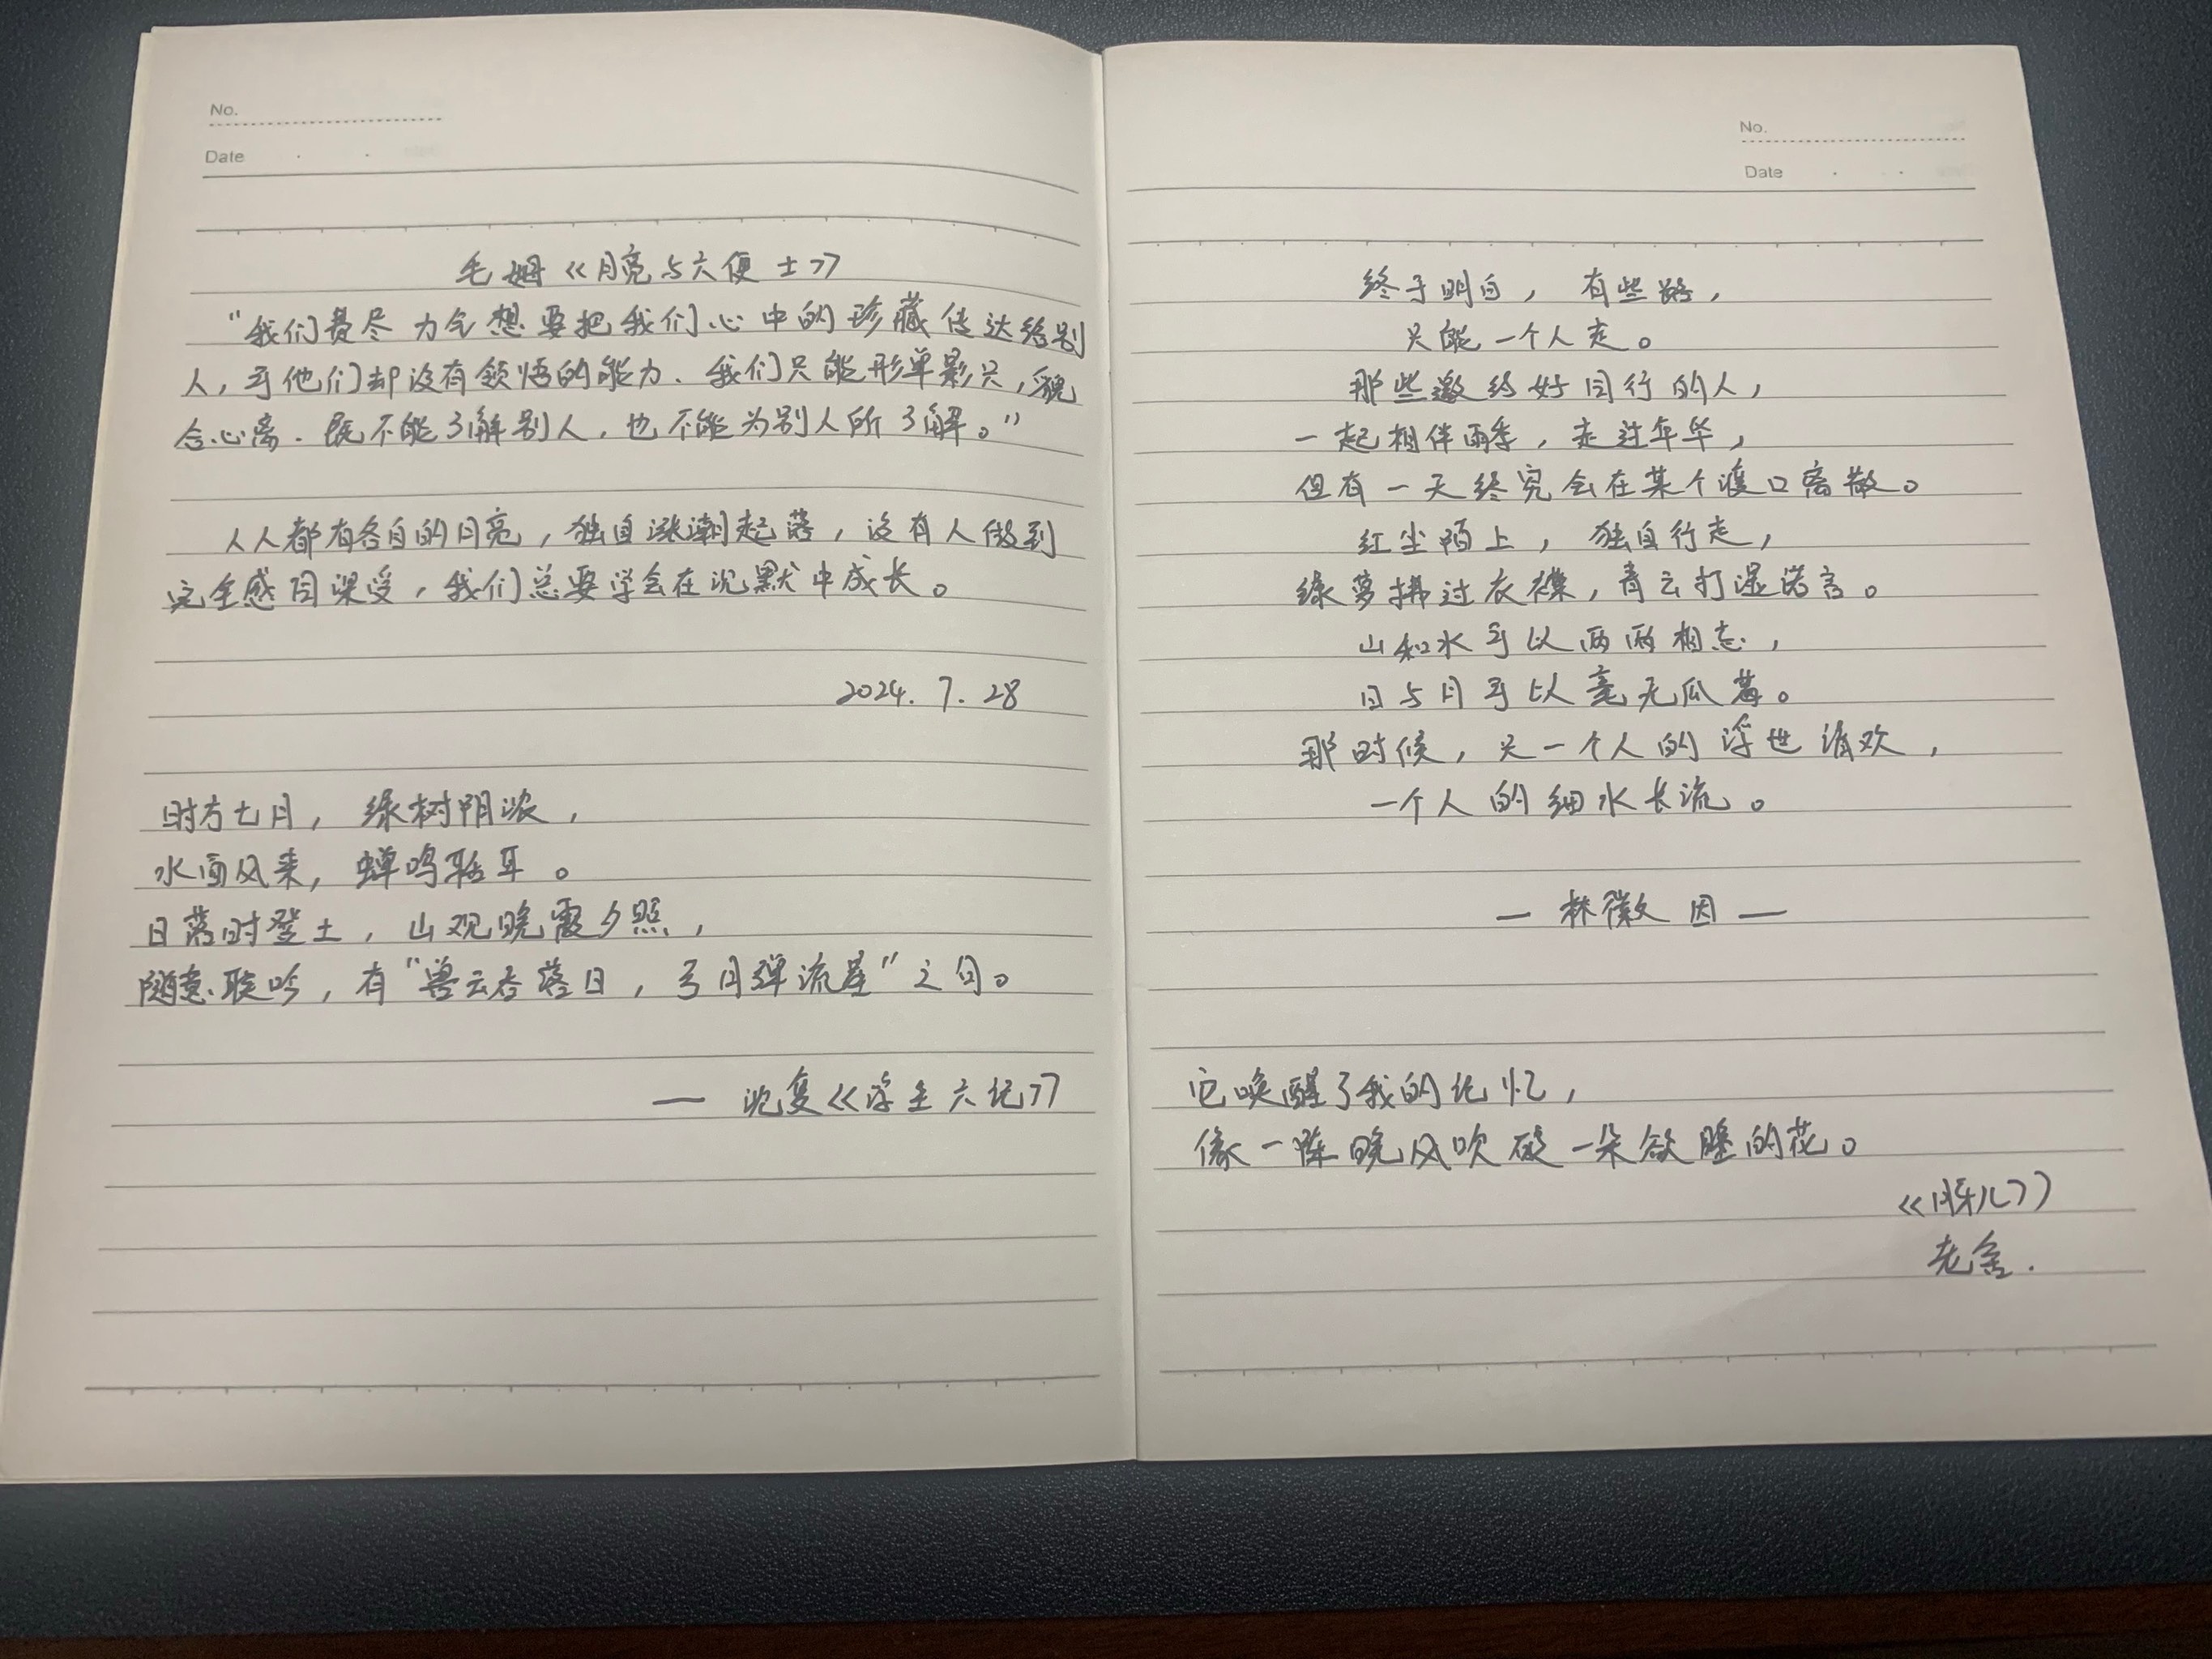 No.
Date
毛姆《月亮与六便士》
"我们费尽力气想要把我们心中的珍藏传达给别
人,可他们却没有领悟的能力.我们只能形单影只,貌
合心离.既不能了解别人,也不能为别人所了解。"
人人都有各自的月亮,独自涨潮起落,没有人做到
完全感同深受,我们总要学会在沉默中成长。
2024.7.28
时方七月,绿树阴浓,
水面风来,蝉鸣聒耳。
日落时登土,山观晚霞夕照,
随意联吟,有"兽云吞落日,弓月弹流星"之句。
— 沈复《浮生六记》
No.
Date
终于明白,有些路,
只能一个人走。
那些邀约好同行的人,
一起相伴雨季,走过年华,
但有一天终究会在某个渡口离散。
红尘陌上,独自行走,
绿萝拂过衣襟,青云打湿诺言。
山和水可以两两相忘,
日与月可以毫无瓜葛。
那时候,只一个人的浮世清欢,
一个人的细水长流。
— 林徽因 —
它唤醒了我的记忆,
像一阵晚风吹破一朵欲睡的花。
《月牙儿》
老舍.